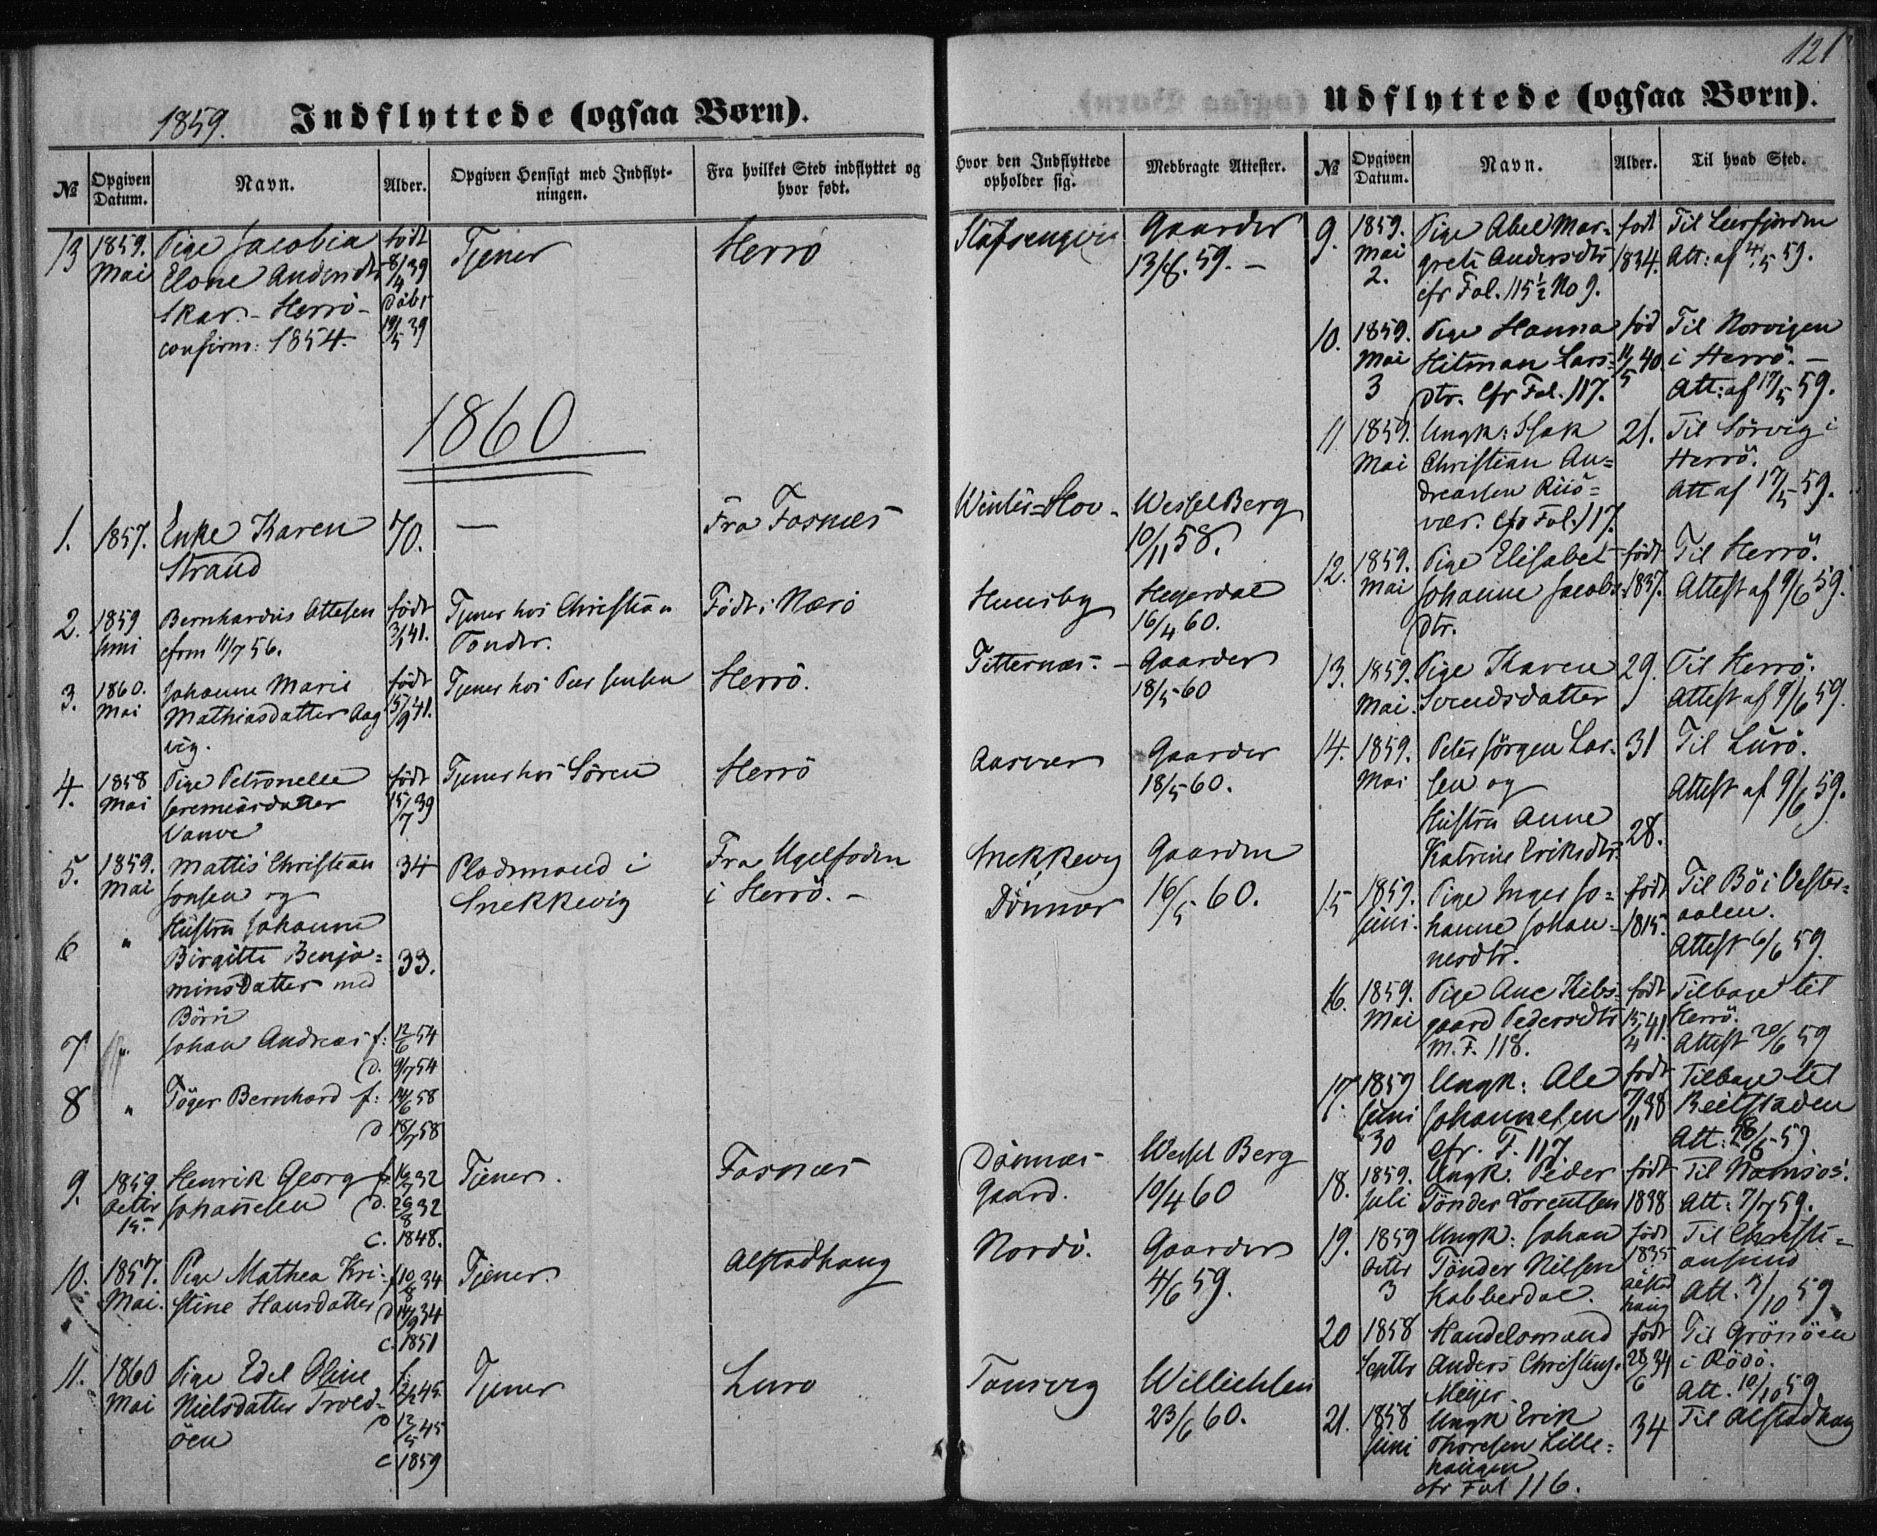 121
1859. Indflyttede (ogsaa Børn).
№
Opgiven Datum.
Navn.
Alder.
Opgiven Hensigt med Indflyt-
ningen.
Fra hvilket Sted indflyttet og
hvor født.
Hvor den Indflyttede
opholder sig.
Medbragte Attester.
13 1859. Pige Jacobia født Tjener Herrö Gaarder
Mai Elone Andersdtr 8/4 39 13/8. 59. –
Skar. – Herrö – döbt
confirm: 1854. 19/5 39
1860
1. 1857. Enke Karen 70. — Fra Fosnæs Winter=Hov – Wessel Berg
Strand 10/11 58.
2. 1859 Bernhardus Ottesen født Tjener hos Christian Født i Nærö Hunsby Heyerdal
Juni cfrm 11/7 56. 3/1 41. Tønder. 16/4 60.
3. 1860. Johanne Marie født Tjener hos Peer Jensen Herrö. Titternæs. – Gaarder
Mai Mathiasdatter Aag 15/9 41. 18/5 60
vig.
4. 1858 Pige Petronelle født Tjener hos Sören Herrö Aasvær Gaarder
Mai Jeremiasdatter 15/7 39 18/5 60.
5. 1859. Mattis Christian 34 Pladsmand i Fra Ugelfoden Snekkevig Gaarder
Mai Jonsen og Snekkevig i Herrö. – Dönnær 16/5 60.
Hustru Johanne
6 " Birgitte Benja= 33.
minsDatter med
Børn
7 " Johan Andreas f: 12/6 54
d. 9/7 54
8 " Töger Bernhard f: 14/6 58
d 18/7 58
9. 1859 Henrik Georg f: 32 Tjener. Fosnæs Dönnæs Wessel Berg
Octbr Johannesen d. 26/8 32 Gaard. 10/4 60
15. c. 1848.
10. 1857. Pige Mathea Kri- f 10/8 34 Tjener. Alstadhaug Nordö. Gaarder
Mai. stine Hansdatter d 14/9 34 4/6 59.
c. 1851
11. 1860 Pige Edel Oline f. Tjener Lurö Tomvig Willichsen
Mai Nielsdatter Trold- 45. 23/6 60.
öen d 12/5 45
c 1859
Udflyttede (ogsaa Børn).
№
Opgiven Datum.
Navn.
Alder.
Til hvad Sted.
9. 1859. Pige Abel Mar- født Til Leerfjorden
Mai grete Andersdtr 1834. Att: af 4/5 59.
2. cfr Fol. 115½ No 9.
10. 1859. Pige Hanna fød Til Norvigen
Mai Hitman Lars= 11/5 40. i Herrö. –
3 dtr. Cfr Fol. 117. Att: af 17/5 59.
11 1859. Ungk: Isak 21. Til Sörvig i
Mai Christian An= Herrö.
dreasen Riis= Att af 17/5 59.
vær. cfr Fol. 117.
12. 1859. Pige Elisabet født Til Herrö.
Mai Johanne Jacobs- 1837. Attest af 9/6 59.
dtr.
13. 1859. Pige Karen 29. Til Herrö.
Mai. Svendsdatter Attest af 9/6 59.
14. 1859. Peter Jörgen Lar- 31 Til Lurö.
Mai sen og Attest af 9/6 59.
Hustru Anne
Katrine Eriksdtr. 28.
15 1859. Pige Inger Jo= født Til Bö i Vester-
Juni. hanne Johan- 1815. aalen.
nesdtr. Attest 6/6 59.
16. 1859. Pige Ane Kibs- født Tilbage til
Mai gaard Pedersdtr 15/4 41. Herrö.
M. F. 118. Attest 20/6 59
17. 1859 Ungk: Ole født Tilbage til
Juni Johannesen 7/11 38 Beitstaden
30 cfr. F. 117.
18. 1859. Ungk. Peder født Til Namsos.
Juli Tønder Lorentsen 1838 Att: 7/7 59.
19. 1859 Ungk: Johan født Til Christi=
Octbr Tønder Nilsen 1835 ansund
3 Kobberdal. Alstad haug Att. 3/10 59
20 1858 Handelsmand født Til Grönöen
Septbr Anders Christens. 28/6 34 i Rödö.
Meyer Att. 10/10 59.
21. 1858 Ungk Erik 34 Til Alstadhaug
Juni Thoresen Lille=
haugen
cfr Fol 116.